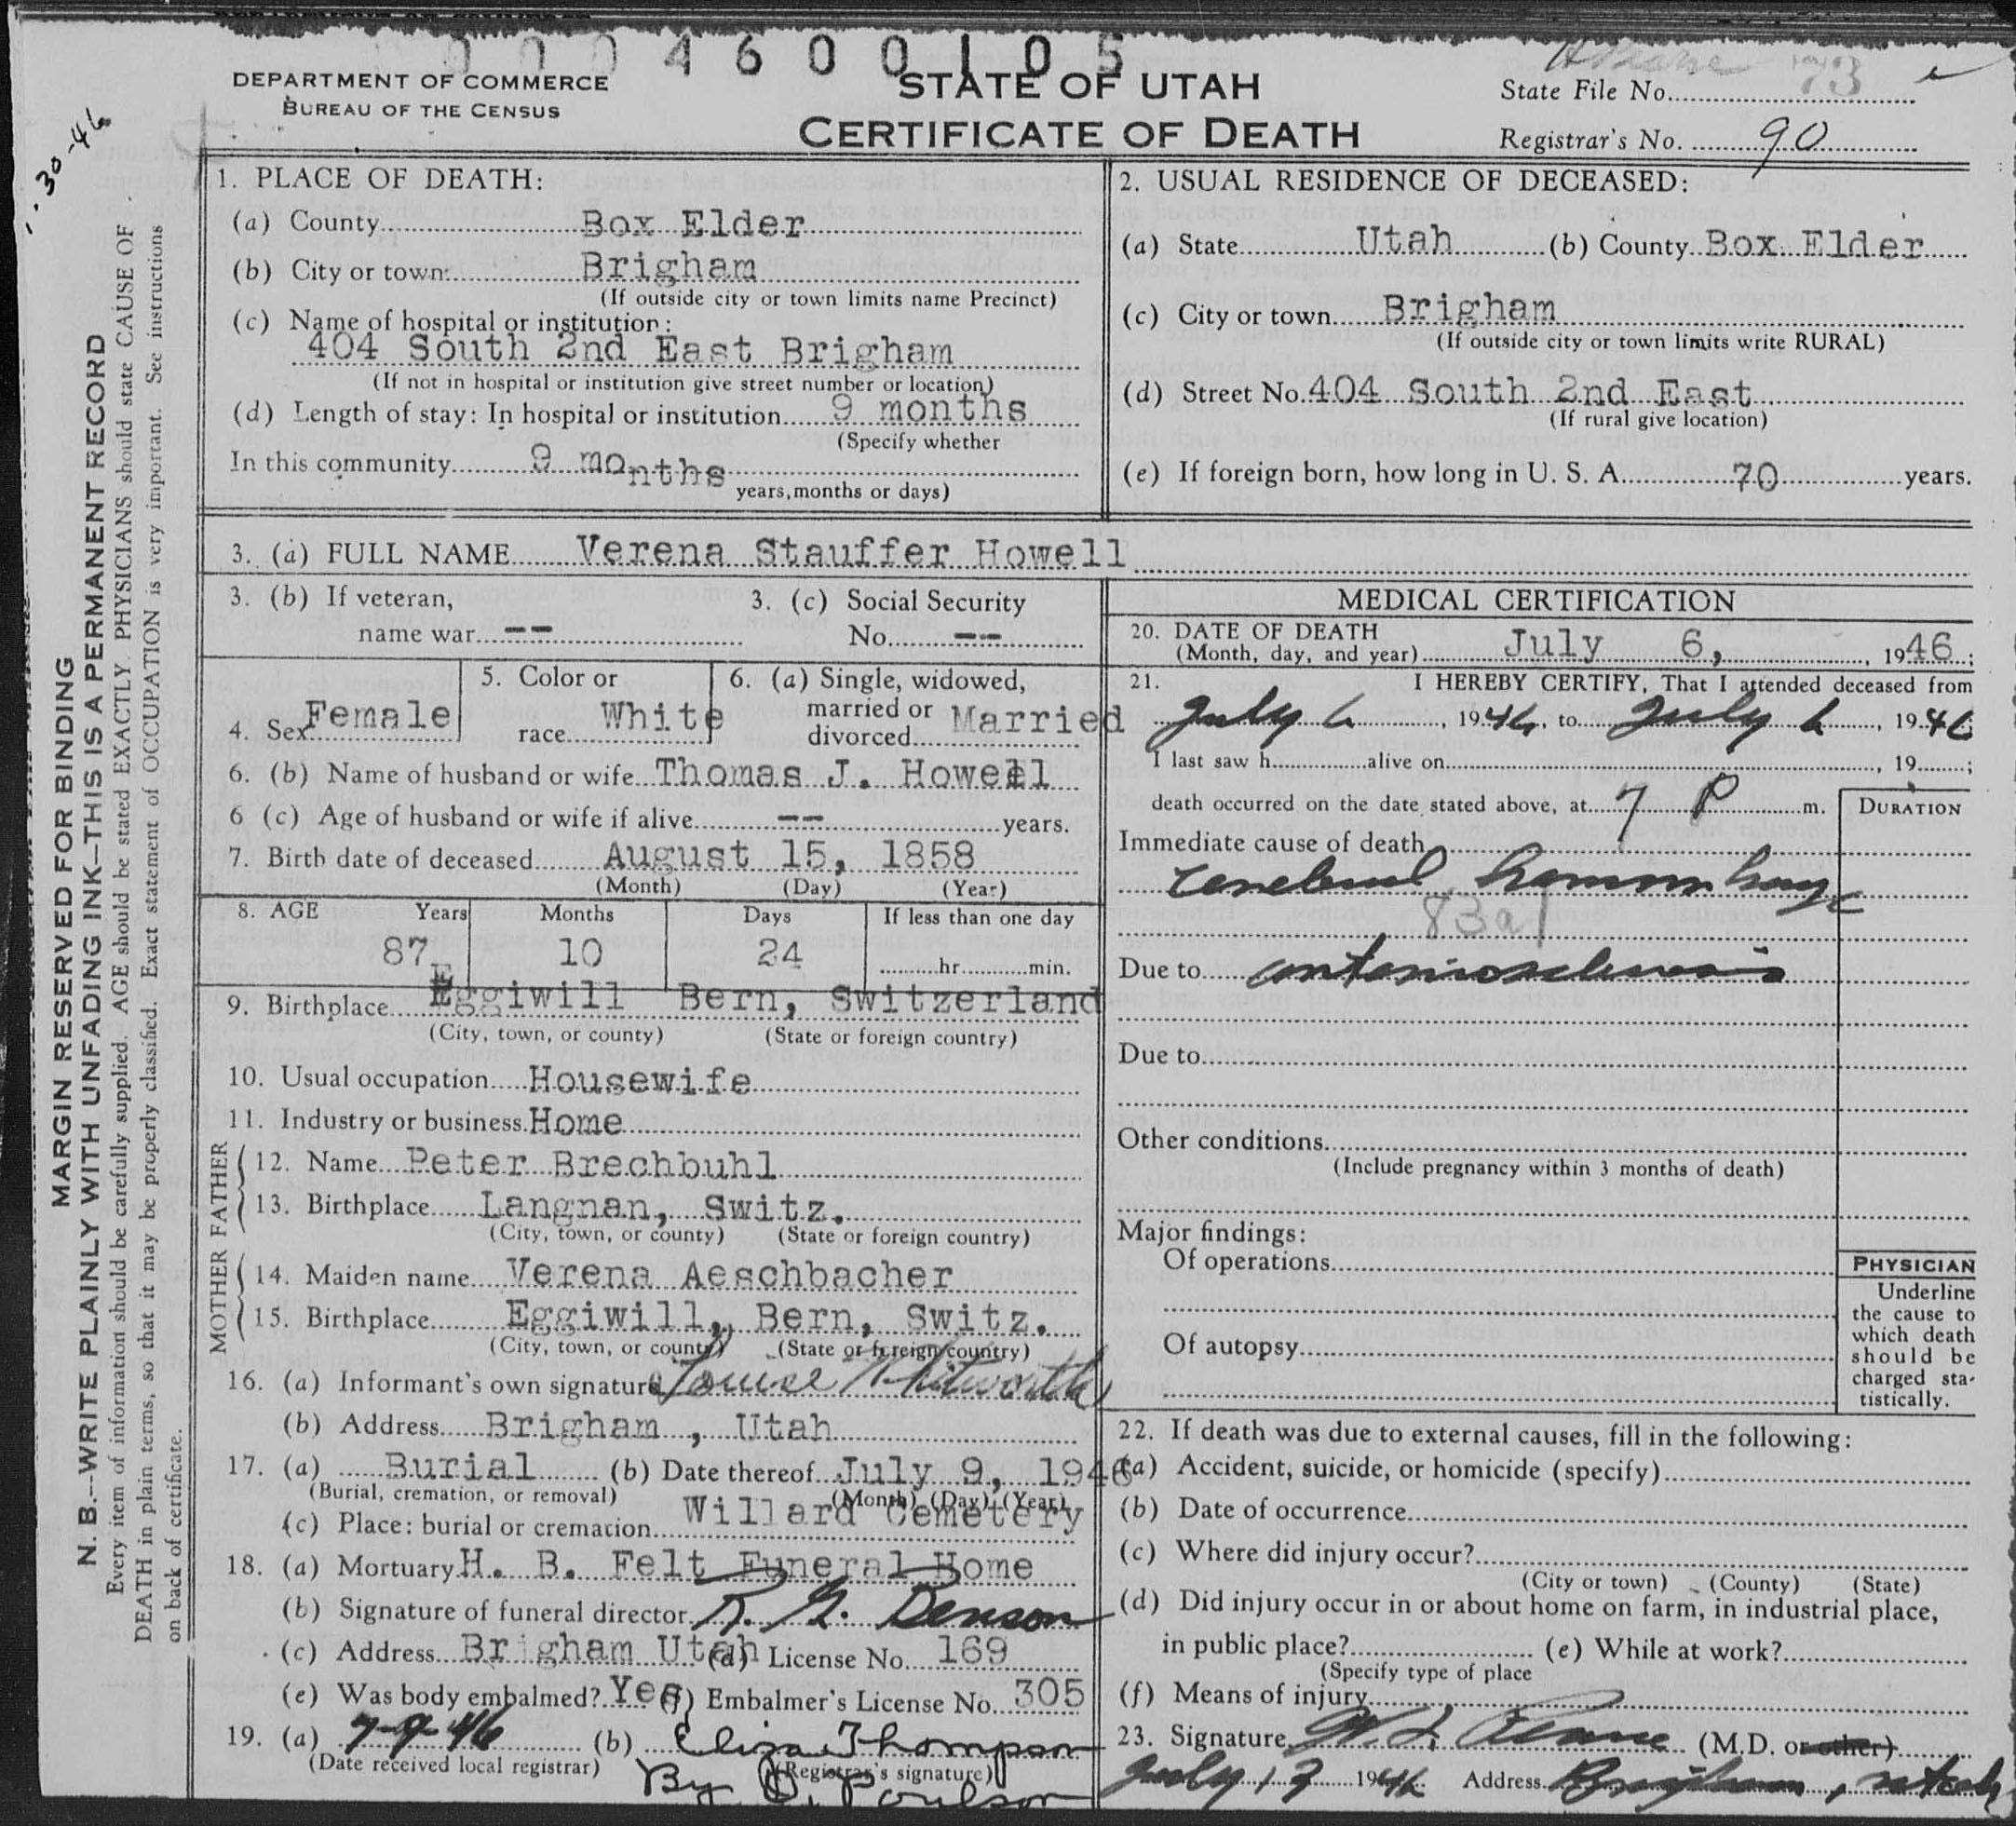 0004600105
DEPARTMENT OF COMMERCE
BUREAU OF THE CENSUS
STATE OF UTAH
CERTIFICATE OF DEATH
State File No. 73
Registrar's No. 90
MARGIN RESERVED FOR BINDING
N. B.--WRITE PLAINLY WITH UNFADING INK--THIS IS A PERMANENT RECORD
Every item of information should be carefully supplied. AGE should be stated EXACTLY. PHYSICIANS should state CAUSE OF
DEATH in plain terms, so that it may be properly classified. Exact statement of OCCUPATION is very important. See instructions
on back of certificate.
1. PLACE OF DEATH:
(a) County Box Elder
(b) City or town: Brigham
(If outside city or town limits name Precinct)
(c) Name of hospital or institution:
404 South 2nd East Brigham
(If not in hospital or institution give street number or location)
(d) Length of stay: In hospital or institution 9 months
(Specify whether
In this community 9 months
years, months or days)
2. USUAL RESIDENCE OF DECEASED:
(a) State Utah (b) County Box Elder
(c) City or town Brigham
(If outside city or town limits write RURAL)
(d) Street No. 404 South 2nd East
(If rural give location)
(e) If foreign born, how long in U. S. A. 70 years.
3. (a) FULL NAME Verena Stauffer Howell
3. (b) If veteran,
name war --
3. (c) Social Security
No. --
4. Sex Female
5. Color or
race White
6. (a) Single, widowed,
married or
divorced Married
6. (b) Name of husband or wife Thomas J. Howell
6 (c) Age of husband or wife if alive -- years.
7. Birth date of deceased August 15, 1858
(Month) (Day) (Year)
8. AGE Years Months Days If less than one day
87 10 24 hr. min.
9. Birthplace Eggiwill Bern, Switzerland
(City, town, or county) (State or foreign country)
10. Usual occupation Housewife
11. Industry or business Home
FATHER
12. Name Peter Brechbuhl
13. Birthplace Langnan, Switz.
(City, town, or county) (State or foreign country)
MOTHER
14. Maiden name Verena Aeschbacher
15. Birthplace Eggiwill, Bern, Switz.
(City, town, or county) (State or foreign country)
16. (a) Informant's own signature Louise Whitworth
(b) Address Brigham, Utah
17. (a) Burial (b) Date thereof July 9, 1946
(Burial, cremation, or removal) (Month) (Day) (Year)
(c) Place: burial or cremation Willard Cemetery
18. (a) Mortuary H. B. Felt Funeral Home
(b) Signature of funeral director Denson
(c) Address Brigham Utah (d) License No. 169
(e) Was body embalmed? Yes (f) Embalmer's License No. 305
19. (a) 7-9-46 (b) Eliza Thompson
(Date received local registrar) (Registrar's signature)
By Poulson
MEDICAL CERTIFICATION
20. DATE OF DEATH
(Month, day, and year) July 6, 1946;
21. I HEREBY CERTIFY, That I attended deceased from
July 6, 1946, to July 6, 1946;
I last saw h alive on , 19 ;
death occurred on the date stated above, at 7 P m.
DURATION
Immediate cause of death
cerebral hemorrhage
83a1
Due to arteriosclerosis
Due to
Other conditions
(Include pregnancy within 3 months of death)
Major findings:
Of operations
Of autopsy
PHYSICIAN
Underline
the cause to
which death
should be
charged sta-
tistically.
22. If death was due to external causes, fill in the following:
(a) Accident, suicide, or homicide (specify)
(b) Date of occurrence
(c) Where did injury occur?
(City or town) (County) (State)
(d) Did injury occur in or about home on farm, in industrial place,
in public place? (e) While at work?
(Specify type of place
(f) Means of injury
23. Signature (M.D. or other)
July 1946 Address Brigham, Utah